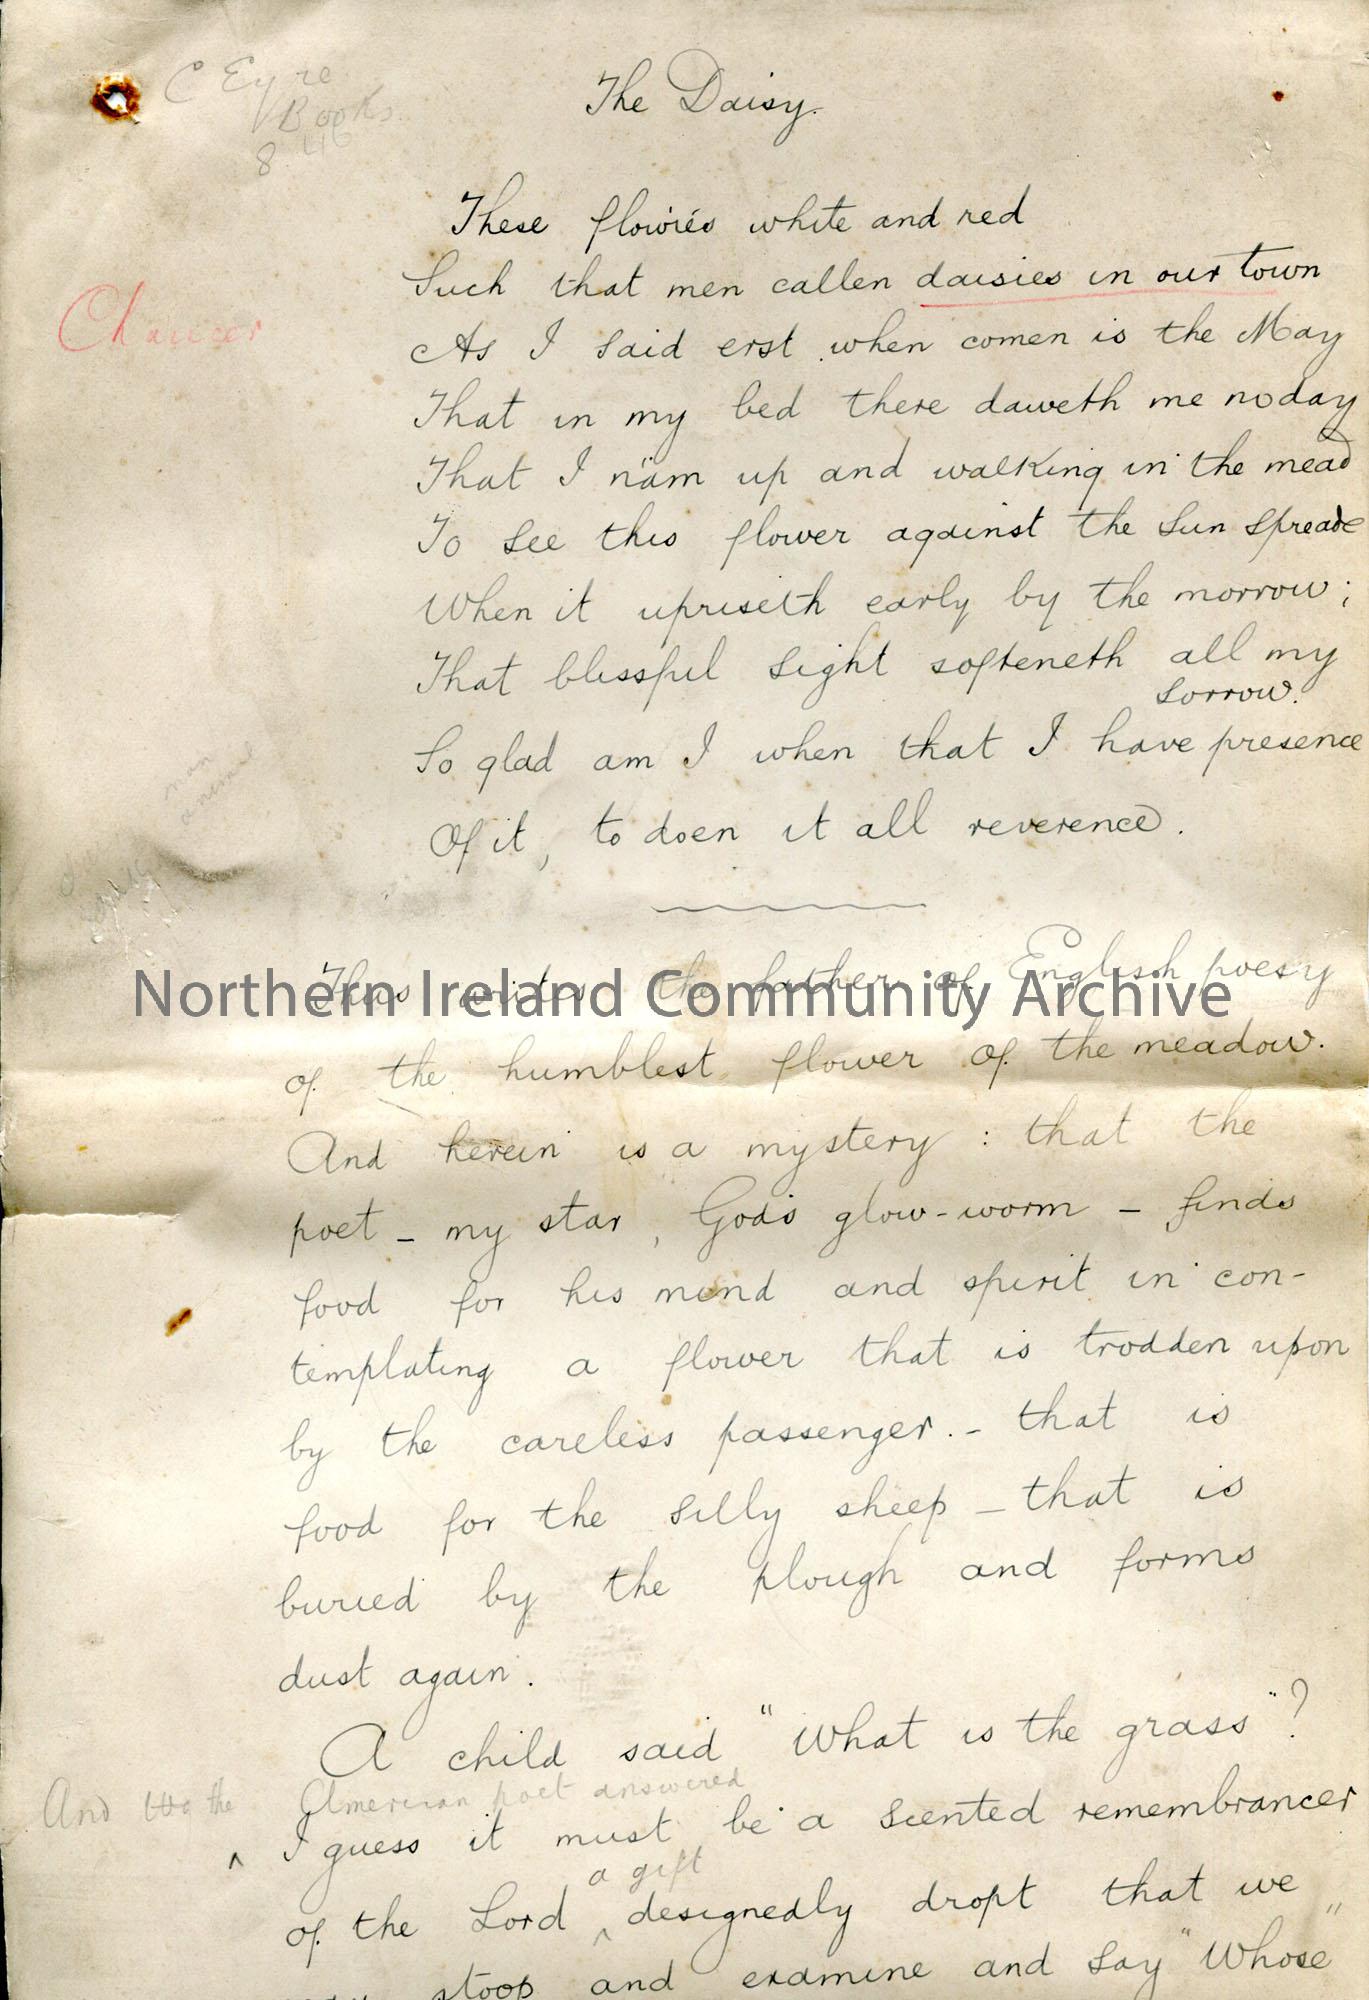 C Eyre
Books
8
The Daisy.
These flowrés white and red
Such that men callen daisies in our town
Chaucer
As I said erst when comen is the May
That in my bed there daweth me no day
That I n'am up and walking in the mead
To see this flower against the sun spreade
When it upriseth early by the morrow;
That blissful sight softeneth all my
sorrow.
So glad am I when that I have presence
Of it, to doen it all reverence.
man
animal
Thus writes the father of English poesy
Northern Ireland Community Archive
of the humblest flower of the meadow.
And herein is a mystery: that the
poet - my star, God's glow-worm - finds
food for his mind and spirit in con-
templating a flower that is trodden upon
by the careless passenger. - that is
food for the silly sheep - that is
buried by the plough and forms
dust again.
A child said "What is the grass"?
And the American poet answered
I guess it must be a scented remembrancer
a gift
of the Lord designedly dropt that we
stoop and examine and say "Whose"